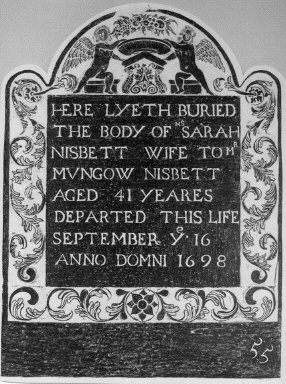 HERE LYETH BURIED
THE BODY OF Mʳˢ SARAH
NISBETT WIFE TO Mʳ
MVNGOW NISBETT
AGED 41 YEARES
DEPARTED THIS LIFE
SEPTEMBER Yᵉ·16
ANNO DOMNI 1698
55